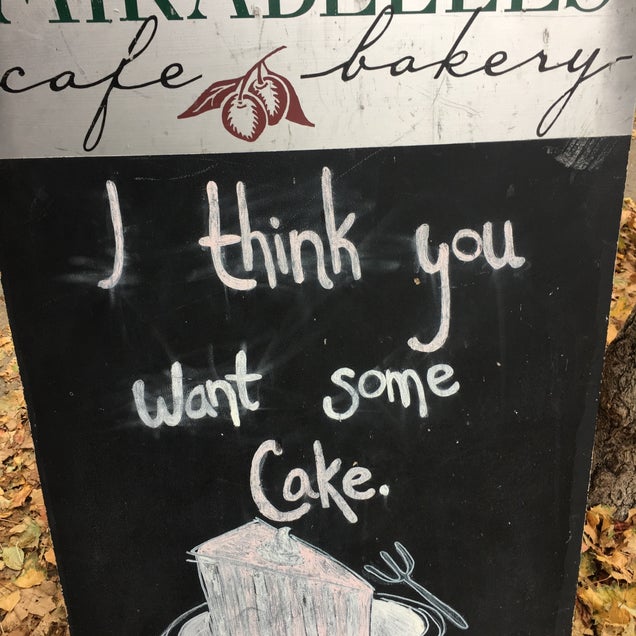 MIRABELLES
cafe bakery
I think you
want some
Cake.